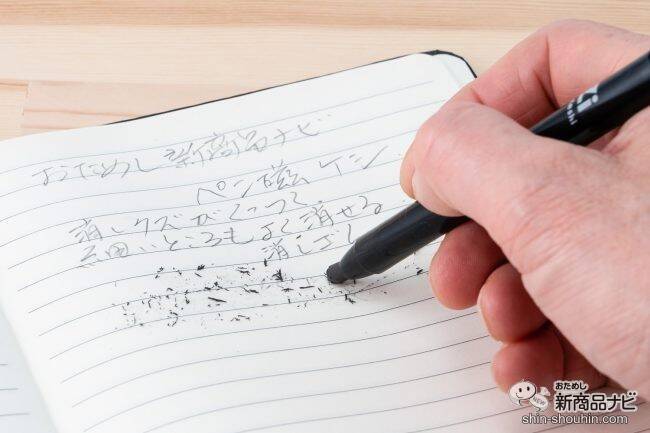 おためし新商品ナビ
ペン磁ケシ
消しクズがくっつく
細いところもよく消せる
消しゴム
おためし
新商品ナビ
NEW
shin-shouhin.com